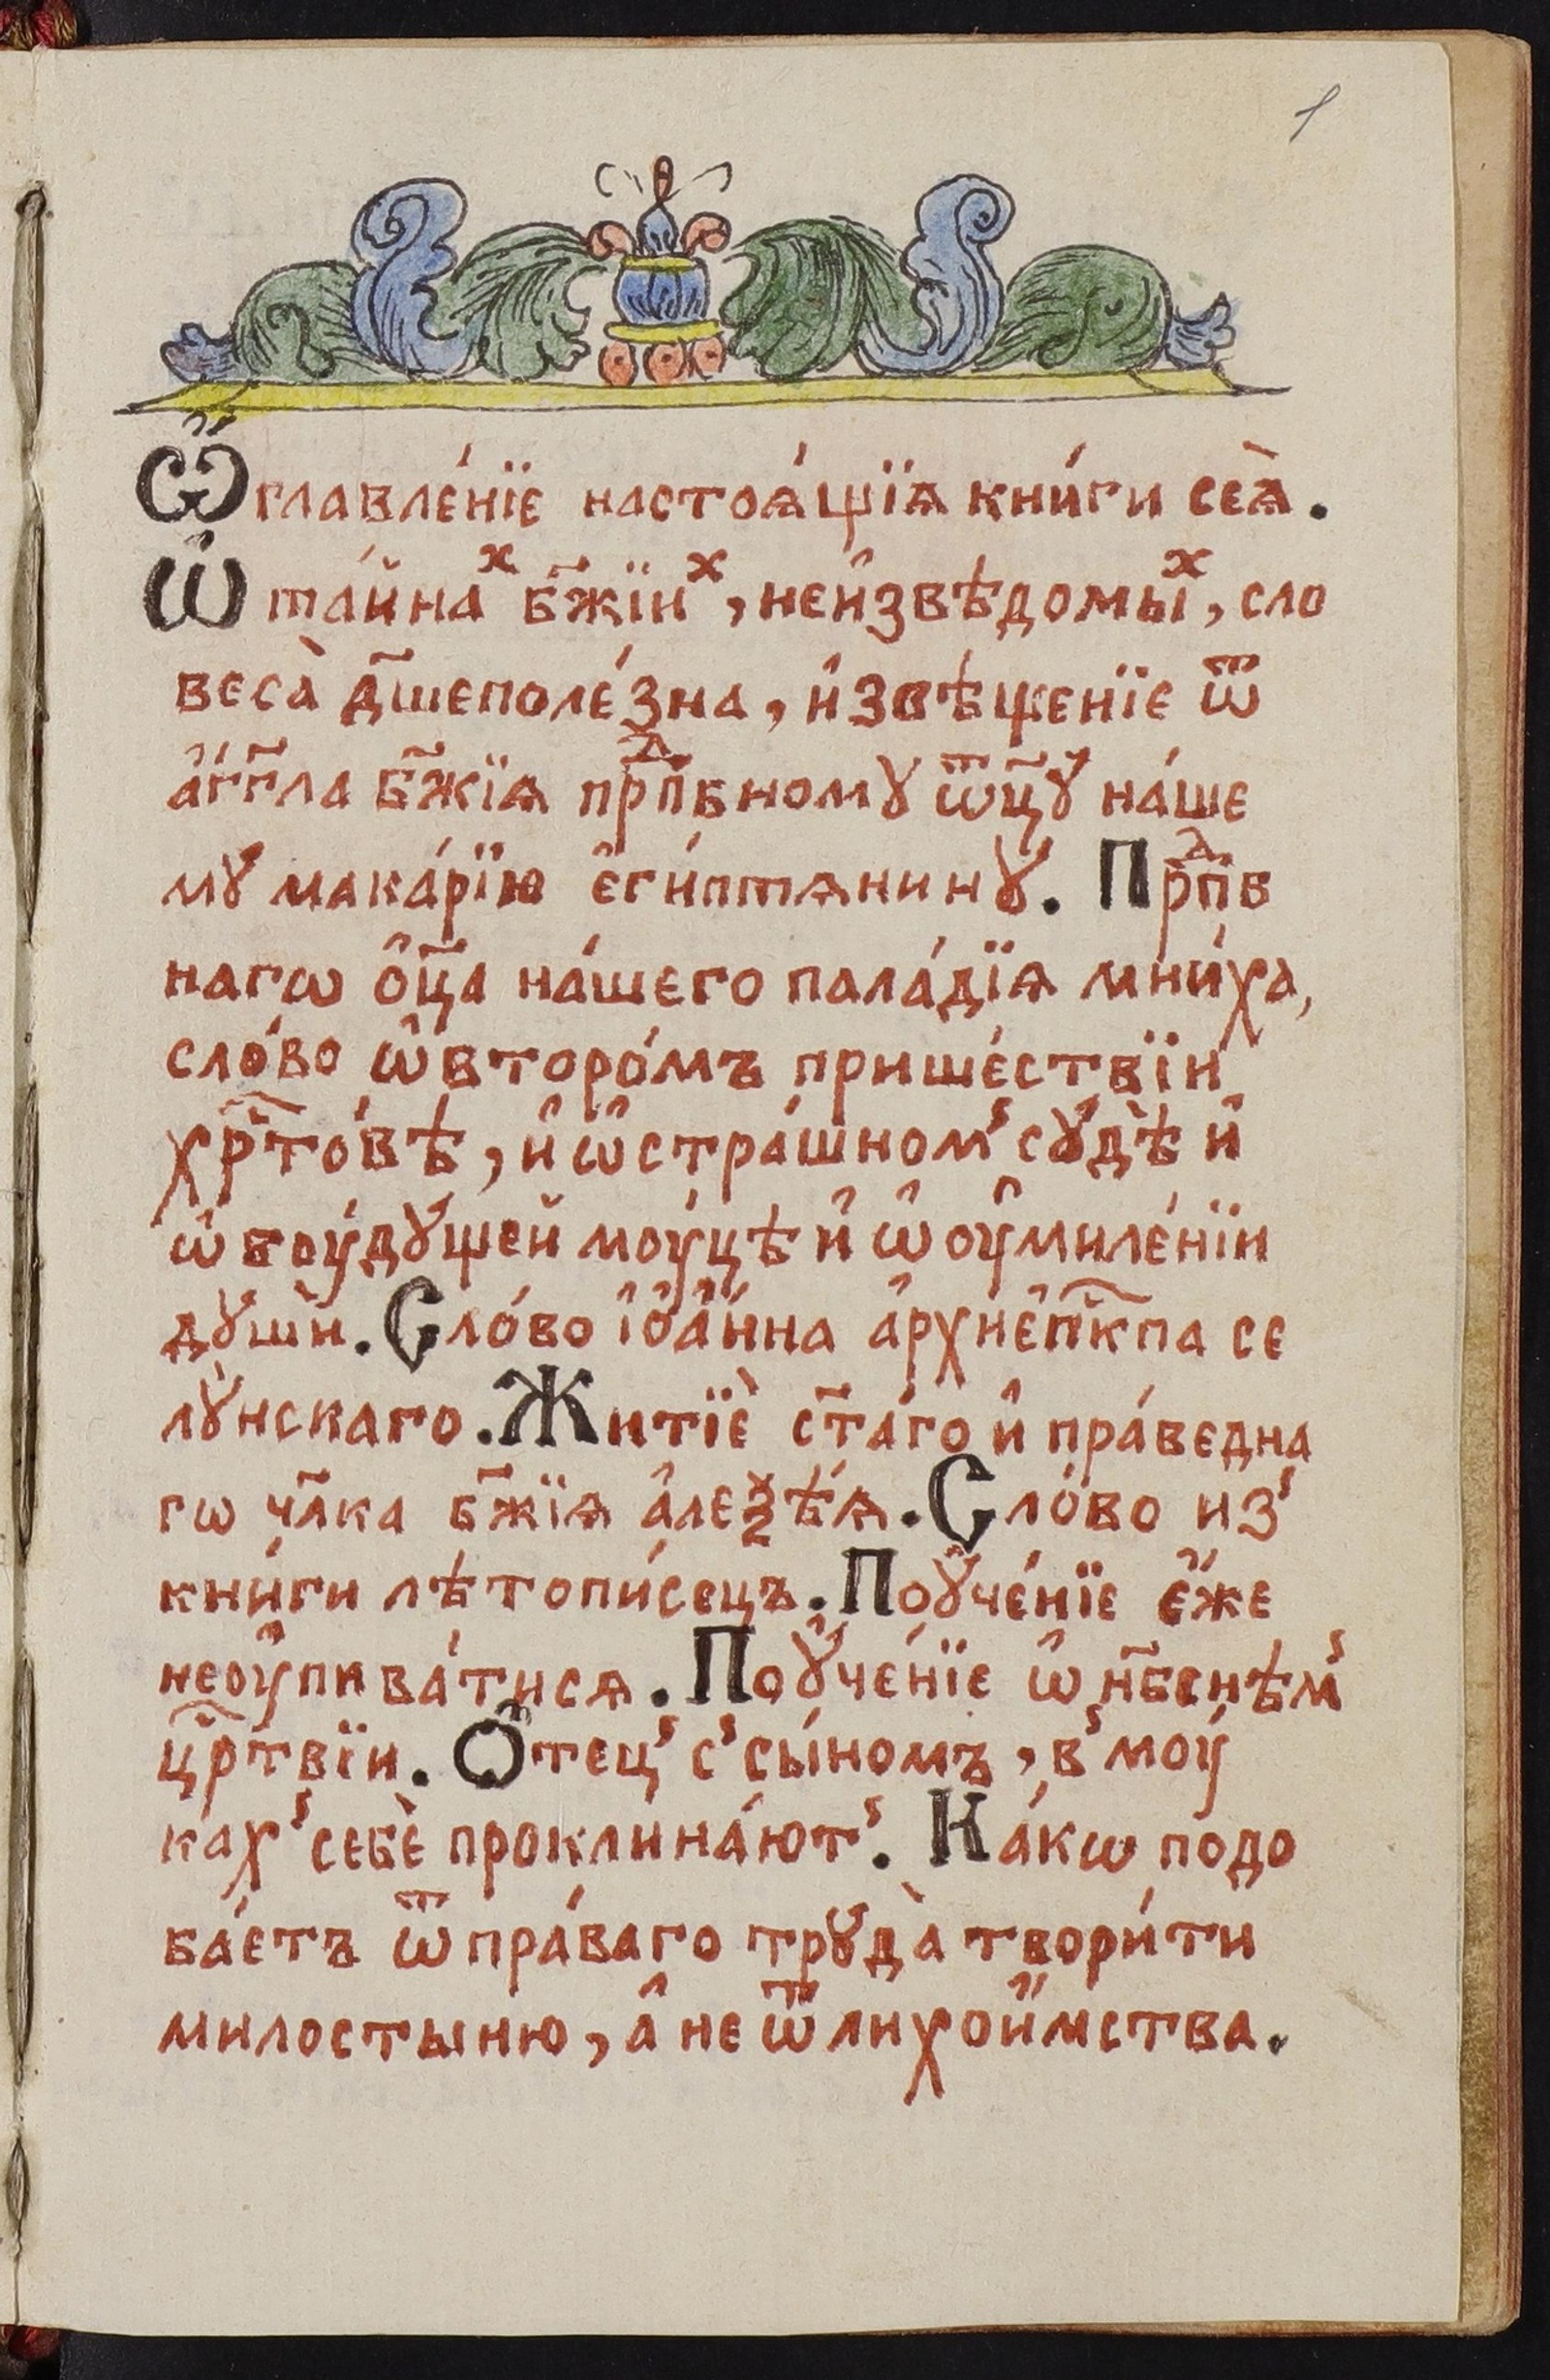 1
Ѡ҆́главле́нїе настоѧ́щїѧ кни́ги сеѧ̀.
Ѡ҆ та́йнаⷯ б҃жїиⷯ, неи҆звѣдомыⷯ, сло
веса̀ д҃шеполе́зна, и҆звѣще́нїе ѿ
а҆́гг҃ла б҃жїѧ прпⷣбномꙋ ѿц҃ꙋ̀ на́ше
мꙋ̀ мака́рїю є҆ги́птѧнинꙋ̀. Прпⷣб
нагѡ ѻ҆ц҃а на́шего пала́дїѧ мни́ха,
сло́во ѡ҆ второ́мъ прише́ствїи
хр҃то́вѣ, и҆ ѡ҆ стра́шном̾ сꙋдѣ̀ и҆
ѡ҆ боу́дꙋщей моу́цѣ и҆ ѡ҆ оу҆миле́нїи
дꙋшѝ. Сло́во і҆ѻа҆́нна а҆рхиє҆п҃кпа се
лꙋ́нскаго. Житїѐ ст҃а́го и҆ пра́ведна
гѡ чл҃ка б҃жїѧ а҆леѯѣ́ѧ. Сло́во из̾
кни́ги лѣтопи́сецъ. Поꙋ҆че́нїе є҆́же
неоу҆пива́тисѧ. Поꙋ҆че́нїе ѡ҆ нб҃снѣм̾
цр҃твїи. Ѻ҆те́ц̾ с̾ сы́номъ, в̾ моу́
ках̾ себѐ проклина́ют̾. Ка́кѡ подо
ба́етъ ѿ пра́ваго трꙋда̀ твори́ти
милостыню, а҆ не ѿ лихои҆́мства.